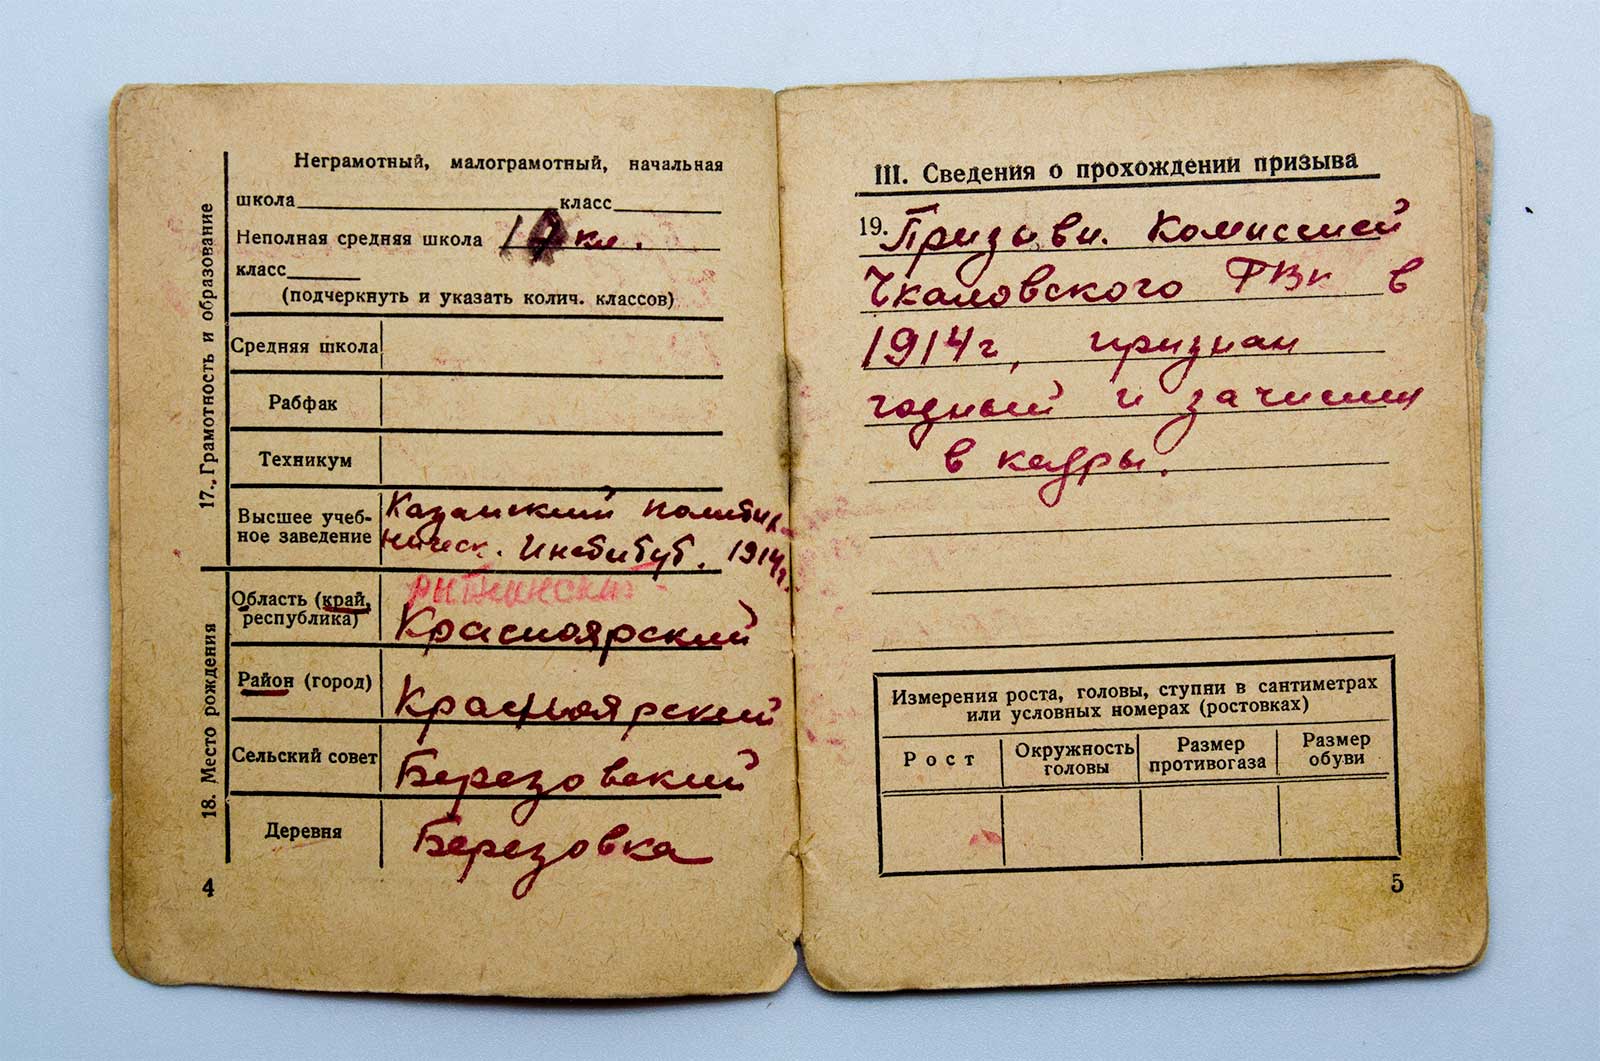 Неграмотный, малограмотный, начальная
школа класс
Неполная средняя школа кл.
класс
(подчеркнуть и указать колич. классов)
17. Грамотность и образование
Средняя школа
Рабфак
Техникум
Высшее учеб-
ное заведение
Казанский политех-
ническ. Институт. 1914г.
18. Место рождения
Область (край,
республика)
Рыбинский
Красноярский
Район (город)
Красноярский
Сельский совет
Березовский
Деревня
Березовка
4
III. Сведения о прохождении призыва
19. Призывн. Комиссией
Чкаловского РВК в
1914г, признан
годный и зачислен
в кадры.
Измерения роста, головы, ступни в сантиметрах
или условных номерах (ростовках)
Рост
Окружность
головы
Размер
противогаза
Размер
обуви
5